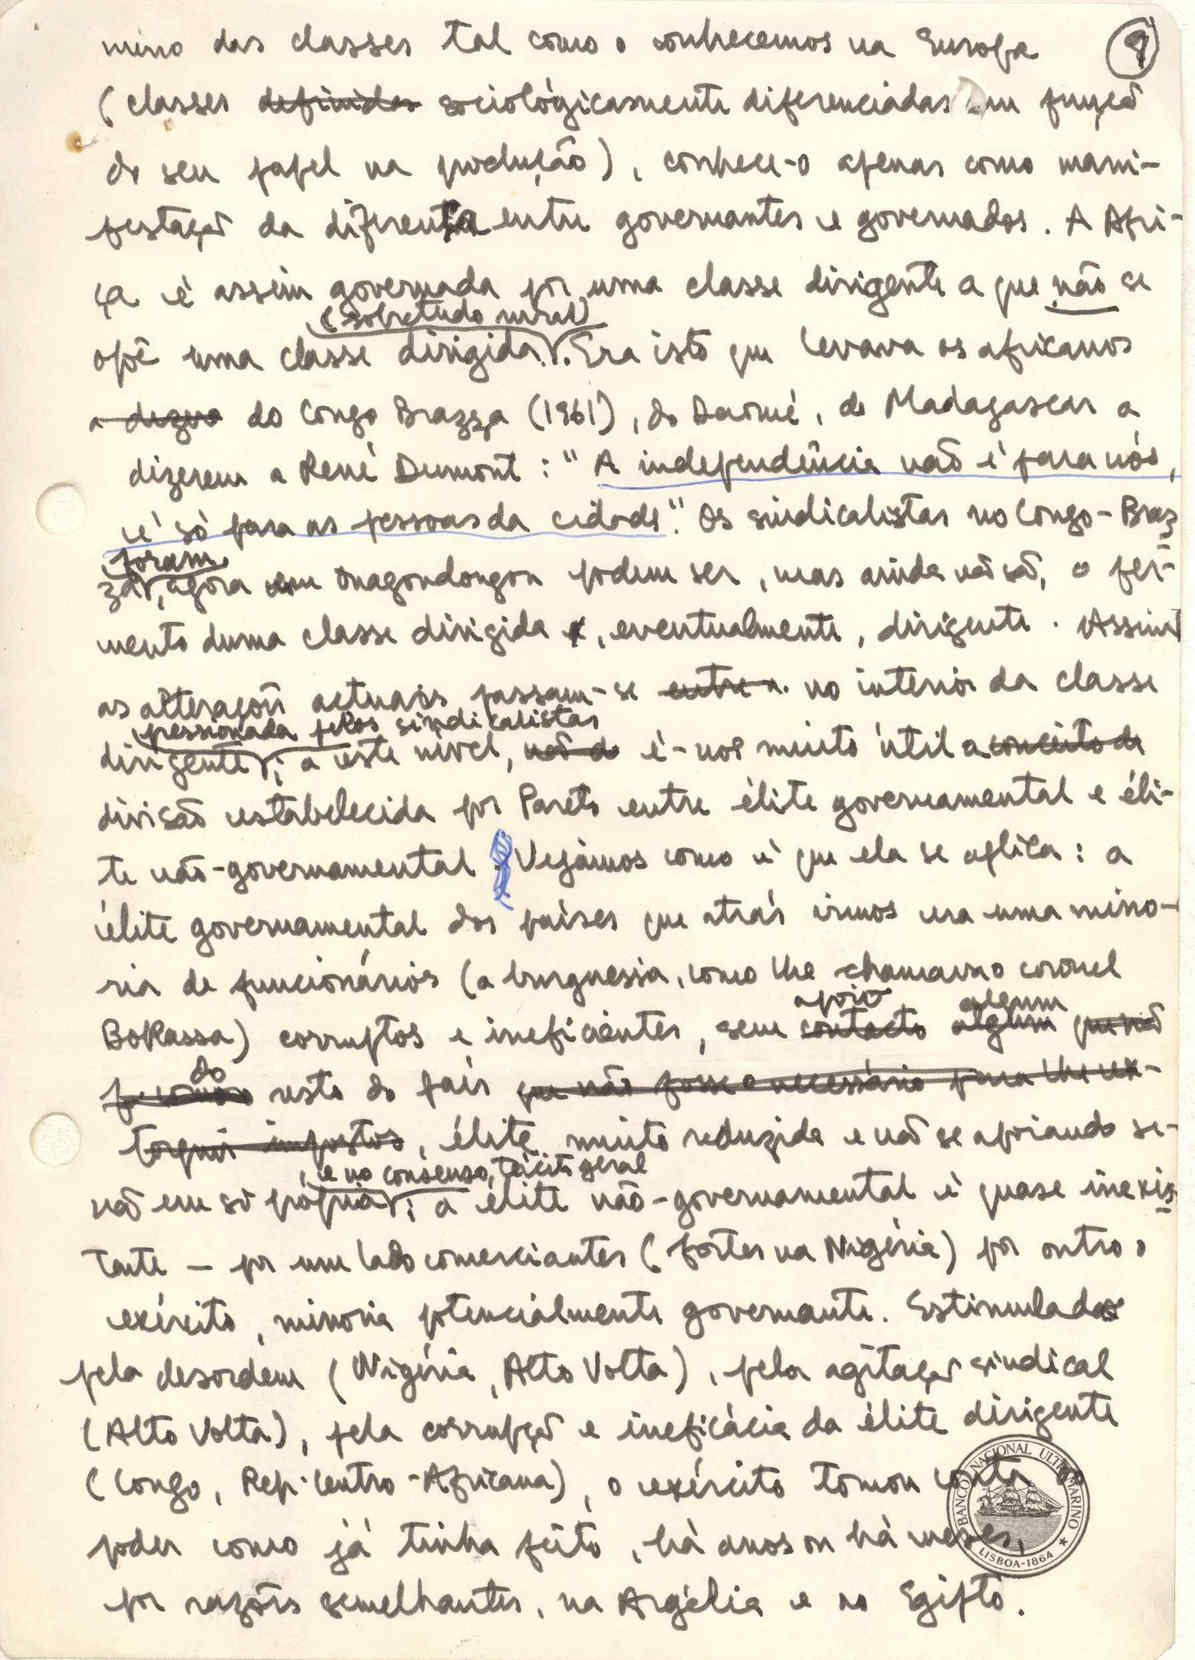 mino das classes tal como o conhecemos na Europa
8
(classes definidas sociológicamente diferenciadas em função
do seu papel na produção), conhece-o apenas como mani-
festação da diferença entre governantes e governados. A Áfri-
ca é assim governada por uma classe dirigente a que não se
(sobretudo rural)
opõe uma classe dirigida. Era isto que levava os africanos
do Congo Brazza (1961), do Daomé, de Madagascar a
dizerem a René Dumont: "A independência não é para nós,
é só para as pessoas da cidade". Os sindicalistas no Congo-Braz
foram
za, agora em Ouagoudougou podem ser, mas ainda não são, o fer-
mento duma classe dirigida e, eventualmente, dirigente. Assim
as alterações actuais passam-se entre a no interior da classe
pressionada pelos sindicalistas
dirigente; a este nível, não d é-nos muito útil a conceito de
divisão estabelecida por Pareto entre élite governamental e éli-
te não-governamental. Vejamos como é que ela se aplica: a
élite governamental dos países que atrás vimos era uma mino-
ria de funcionários (a burguesia, como lhe chamava o coronel
apoio algum
Bokassa) corruptos e ineficientes, sem contacto algum que não
do
resto do país que não fosse o necessário para lhe ex-
torquir impostos, élite muito reduzida e não se apoiando se-
e no consenso tácito geral
não em si própria; a élite não-governamental é quase inexis
tente — por um lado comerciantes (fortes na Nigéria) por outro o
exército, minoria potencialmente governante. Estimulado
pela desordem (Nigéria, Alto Volta), pela agitação sindical
(Alto Volta), pela corrupção e ineficácia da élite dirigente
(Congo, Rep. Centro-Africana), o exército tomou conta do
poder como já tinha feito, há anos ou há meses,
por razões semelhantes, na Argélia e no Egipto.
BANCO NACIONAL ULTRAMARINO
LISBOA-1864